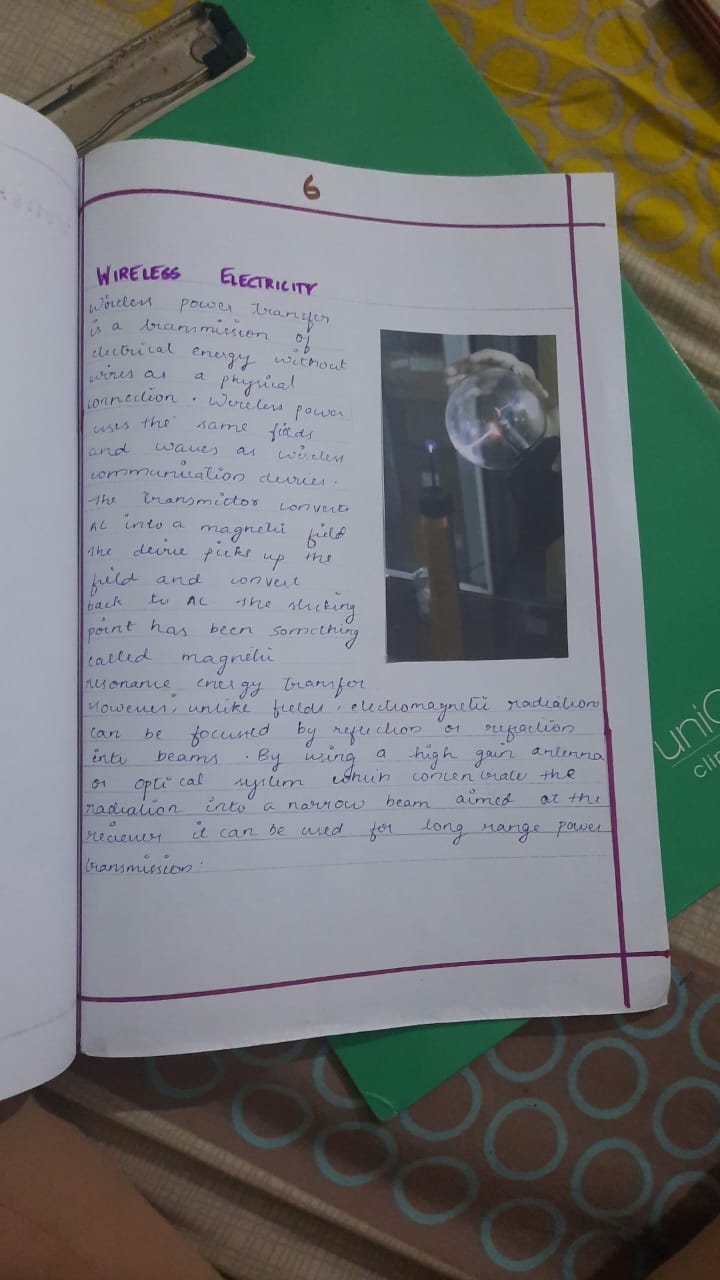 6
WIRELESS ELECTRICITY
Wireless power transfer
is a transmission of
electrical energy without
wires as a physical
connection. Wireless power
uses the same fields
and waves as wireless
communication devices.
The transmittor converts
AC into a magnetic field
the device picks up the
field and convert
back to AC the sticking
point has been something
called magnetic
resonance energy transfer
However, unlike fields, electromagnetic radiation
can be focused by reflection or refraction
into beams. By using a high gain antenna
or optical system which concentrate the
radiation into a narrow beam aimed at the
reciever it can be used for long range power
transmission.